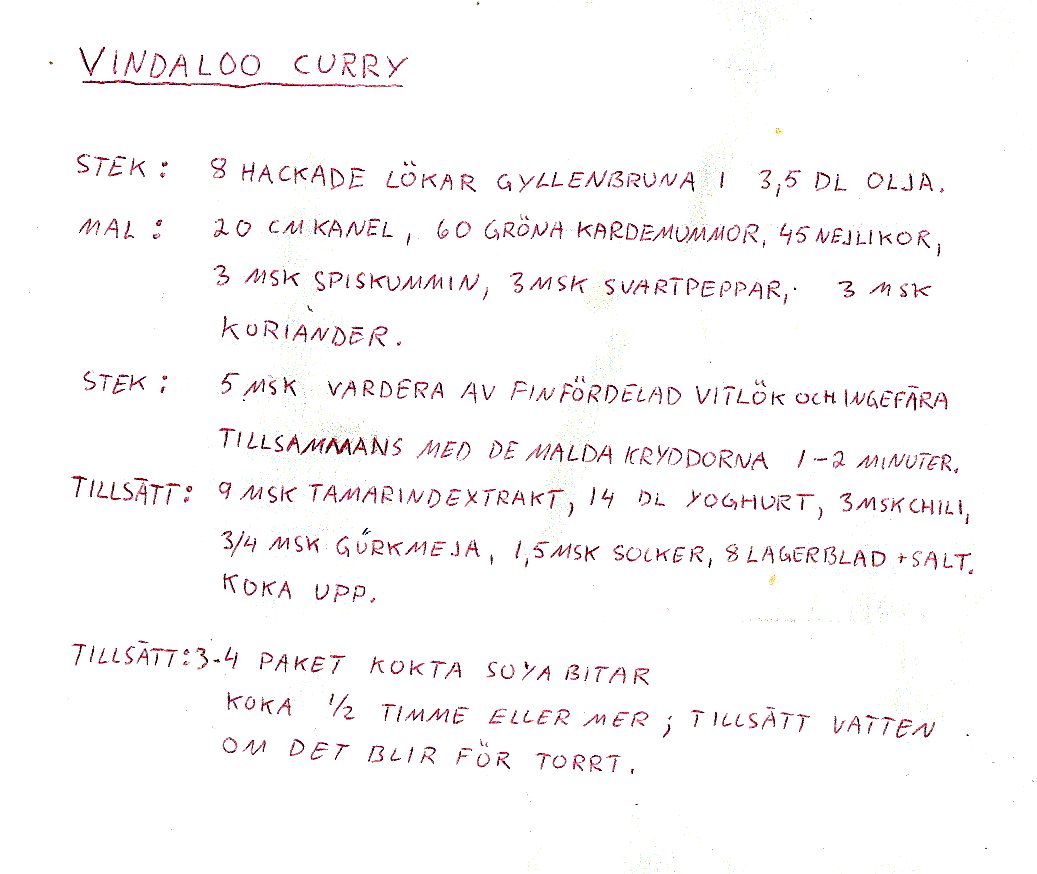 VINDALOO CURRY
STEK: 8 HACKADE LÖKAR GYLLENBRUNA I 3,5 DL OLJA.
MAL: 20 CM KANEL, 60 GRÖNA KARDEMUMMOR, 45 NEJLIKOR,
3 MSK SPISKUMMIN, 3 MSK SVARTPEPPAR, 3 MSK
KORIANDER.
STEK: 5 MSK VARDERA AV FINFÖRDELAD VITLÖK OCH INGEFÄRA
TILLSAMMANS MED DE MALDA KRYDDORNA 1-2 MINUTER.
TILLSÄTT: 9 MSK TAMARINDEXTRAKT, 14 DL YOGHURT, 3 MSK CHILI,
3/4 MSK GURKMEJA, 1,5 MSK SOCKER, 8 LAGERBLAD + SALT.
KOKA UPP.
TILLSÄTT: 3-4 PAKET KOKTA SOYABITAR
KOKA 1/2 TIMME ELLER MER; TILLSÄTT VATTEN
OM DET BLIR FÖR TORRT.